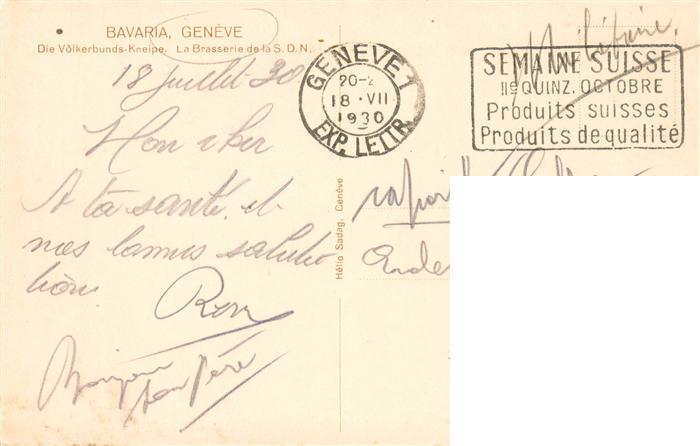 BAVARIA, GENÈVE
Die Völkerbunds-Kneipe. La Brasserie de la S. D. N.
18 juillet 30
Mon cher
A ta santé et
nos
Ron
Bonjour
ton Père
GENÈVE 1
20-2
18 · VII
1930
EXP. LETTR.
Militaire
SEMAINE SUISSE
IIe QUINZ. OCTOBRE
Produits suisses
Produits de qualité
Hélio Sadag, Genève